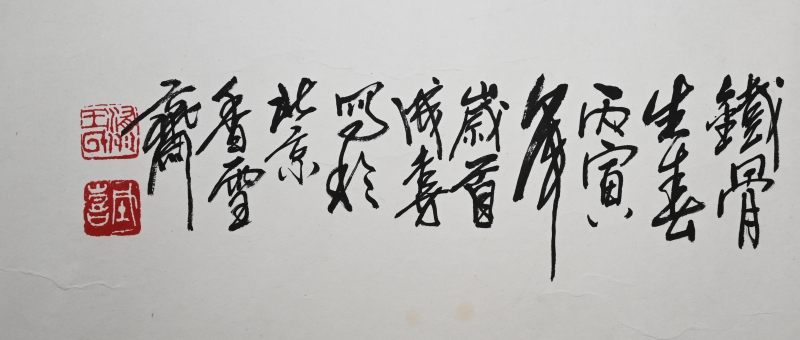 鐵骨
生春
丙寅
年
歲首
成喜
寫於
北京
香雪
齋